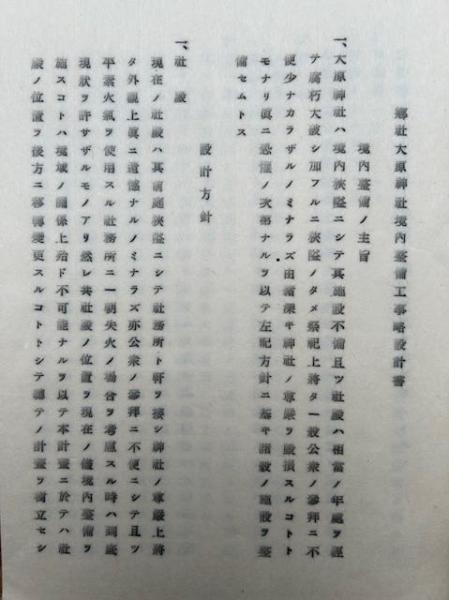 郷社大原神社境内整備工事略設計書
境内整備ノ主旨
一、大原神社ハ境内狹隘ニシテ其施設不備且ツ社殿ハ相當ノ年處ヲ經
テ腐朽大破シ加フルニ狹隘ノタメ祭祀上將タ一般公衆ノ參拜ニ不
便少ナカラザルノミナラズ由緒深キ神社ノ尊嚴ヲ毀損スルコトト
モナリ眞ニ恐懼ノ次第ナルヲ以テ左記方針ニ基キ諸般ノ施設ヲ整
備セムトス
設計方針
一、社殿
現在ノ社殿ハ其前庭狹隘ニシテ社務所ト軒ヲ接シ神社ノ尊嚴上將
タ外觀上眞ニ遺憾ナルノミナラズ亦公衆ノ參拜ニ不便ニシテ且ツ
平素火氣ヲ使用スル社務所ニ一朝失火ノ場合ヲ考慮スル時ハ到底
現狀ヲ許サザルモノアリ然レ共社殿ノ位置ヲ現在ノ儘境內整備ヲ
施スコトハ境域ノ關係上殆ド不可能ナルヲ以テ本計畫ニ於テハ社
殿ノ位置ヲ後方ニ移轉變更スルコトトシテ總テノ計畫ヲ樹立セシ